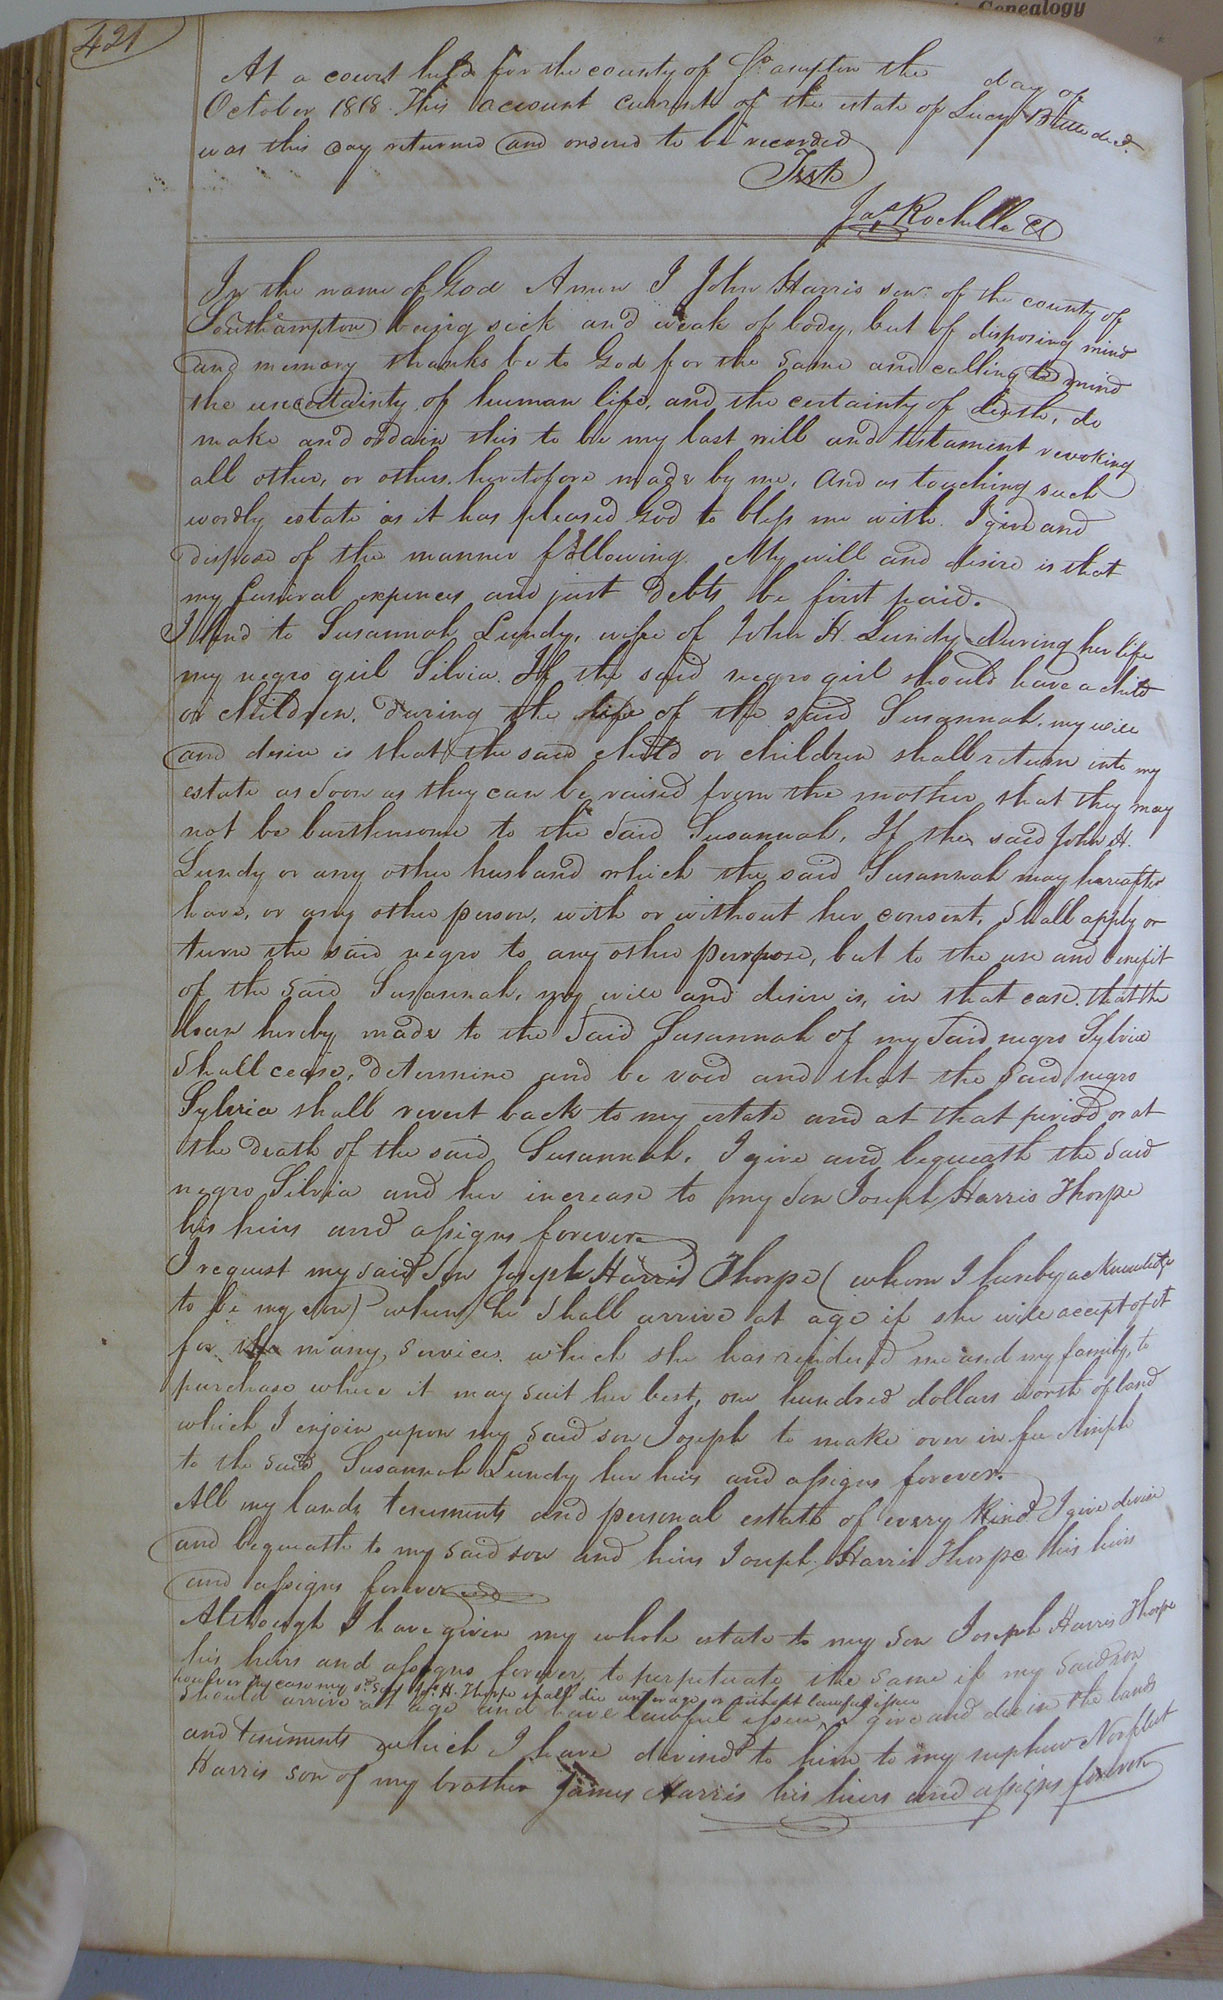 Genealogy
421
At a court held for the county of So.ampton the day of
October 1818 This account current of the estate of Lucy decd.
was this day returned and ordered to be recorded
Teste
Jas Rochelle Cl
In the name of God Amen I John Harris senr. of the county of
Southampton being sick and weak of body, but of disposing mind
and memory thanks be to God for the same and calling to mind
the uncertainty of human life, and the certainty of death, do
make and ordain this to be my last will and testament revoking
all other, or others heretofore made by me, and as touching such
wordly estate as it has pleased God to bless me with. I give and
dispose of the manner following. My will and desire is that
my funiral expences and just debts be first paid.
I lend to Susannah Lundy, wife of John H. Lundy during her life
my negro girl Silvia. If the said negro girl should have a child
or children, during the life of the said Susannah, my will
and desire is that the said child or children shall return into my
estate as soon as they can be raised from the mother, that they may
not be burthensome to the said Susannah, If the said John H.
Lundy or any other husband which the said Susannah may hereafter
have, or any other person, with or without her consent, shall apply or
turn the said negro to any other purpose, but to the use and benefit
of the said Susannah, my will and desire is, in that case, that the
loan hereby made to the said Susannah of my said negro Sylvia
shall cease, determine and be void and that the said negro
Sylvia shall revert back to my estate and at that period or at
the death of the said Susannah, I give and bequeath the said
negro Silvia and her increase to my son Joseph Harris Thorpe
his heirs and assigns forever
I request my said son Joseph Harris Thorpe (whom I hereby acknowledge
to be my son) when he shall arrive at age if she will accept of it
for the many services which she has rendered me and my family, to
purchase where it may suit her best, one hundred dollars worth of land
which I enjoin upon my said son Joseph to make over in fee simple
to the said Susannah Lundy her heirs and assigns forever.
All my lands tenements and personal estate of every kind I give devise
and bequeath to my said son and heirs Joseph Harris Thorpe his heirs
and assigns forever
Although I have given my whole estate to my son Joseph Harris Thorpe
his heirs and assigns forever, to perpetuate the same if my said son
however in case my sd. son Jos. H. Thorpe shall die under age or without lawful issue
should arrive at age and have lawful issue, I give and devise the lands
and tenements which I have devised to him to my nephew Norfleet
Harris son of my brother James Harris his heirs and assigns forever